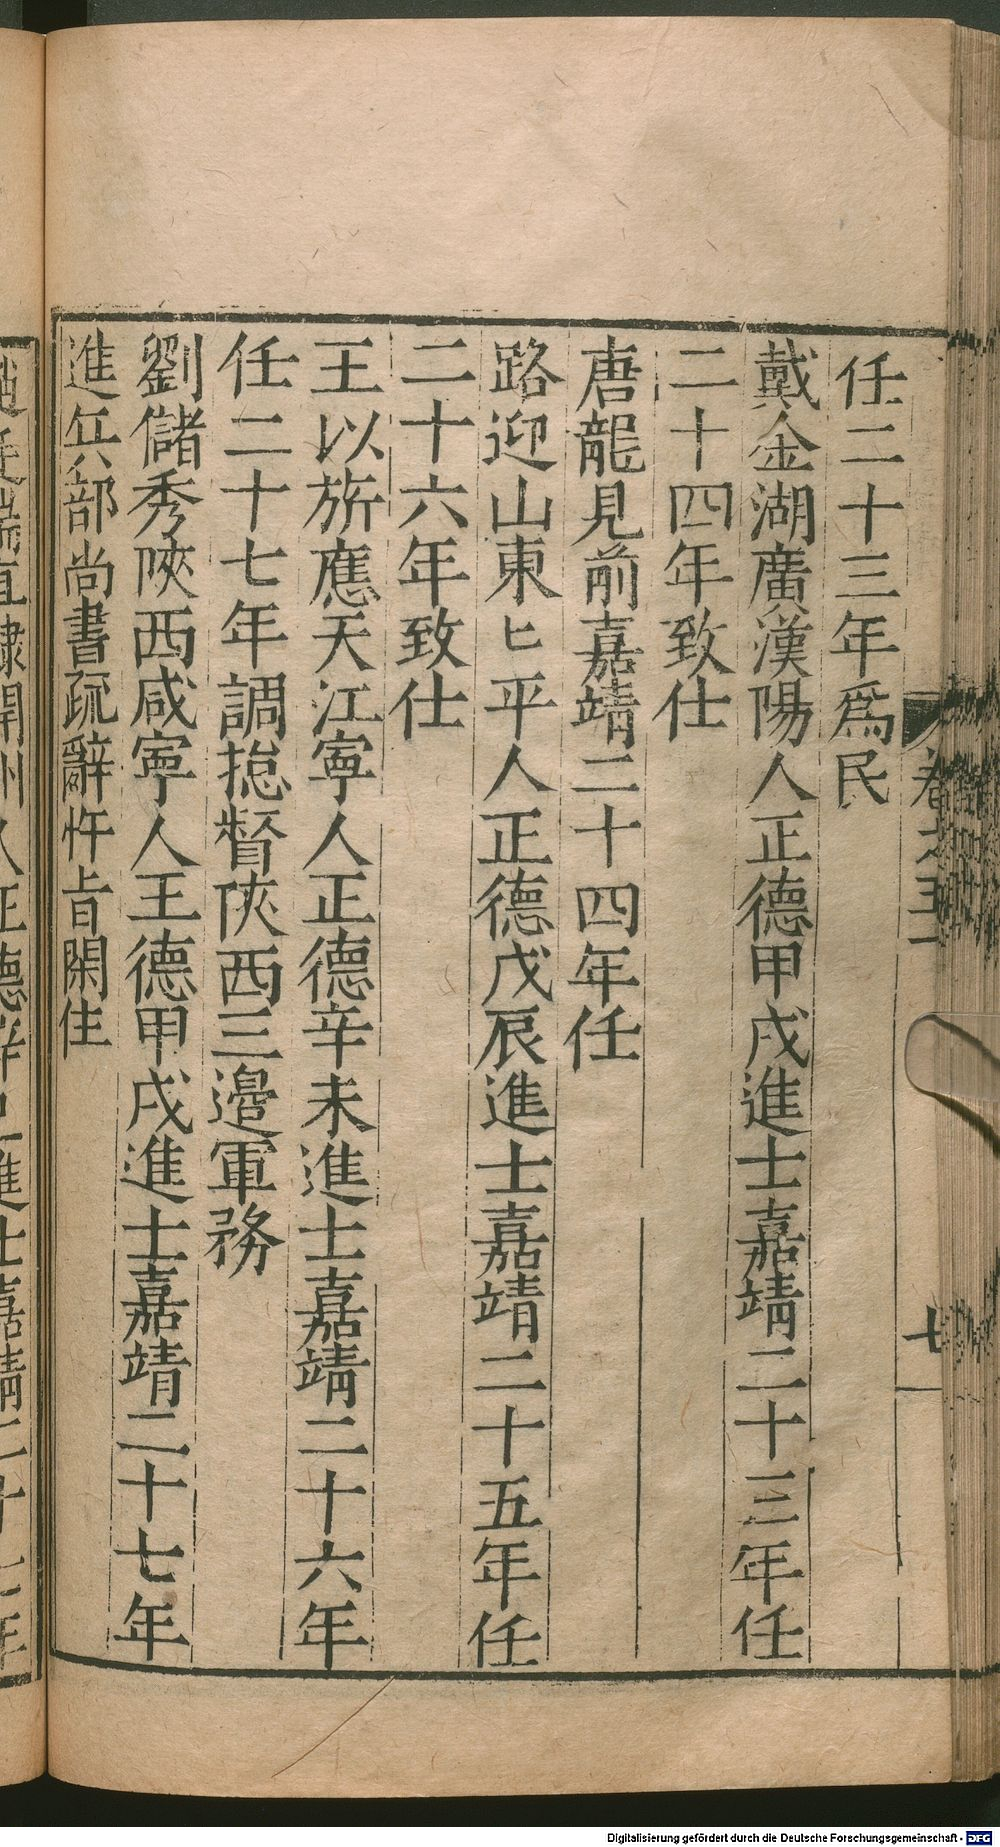 任二十三年爲民
戴金湖廣漢陽人正德甲戌進士嘉靖二十三年任
二十四年致仕
唐龍見前嘉靖二十四年任
路迎山東匕平人正德戊辰進士嘉靖二十五年任
二十六年致仕
王以旂應天江寧人正德辛未進士嘉靖二十六年
任二十七年調揔督陜西三邊軍務
劉儲秀陜西咸寧人王德甲戌進士嘉靖二十七年
進兵部尚書疏辭忤旨閑住
直隷開州人正德辛巳進士嘉靖二十七年
Digitalisierung gefördert durch die Deutsche Forschungsgemeinschaft - DFG